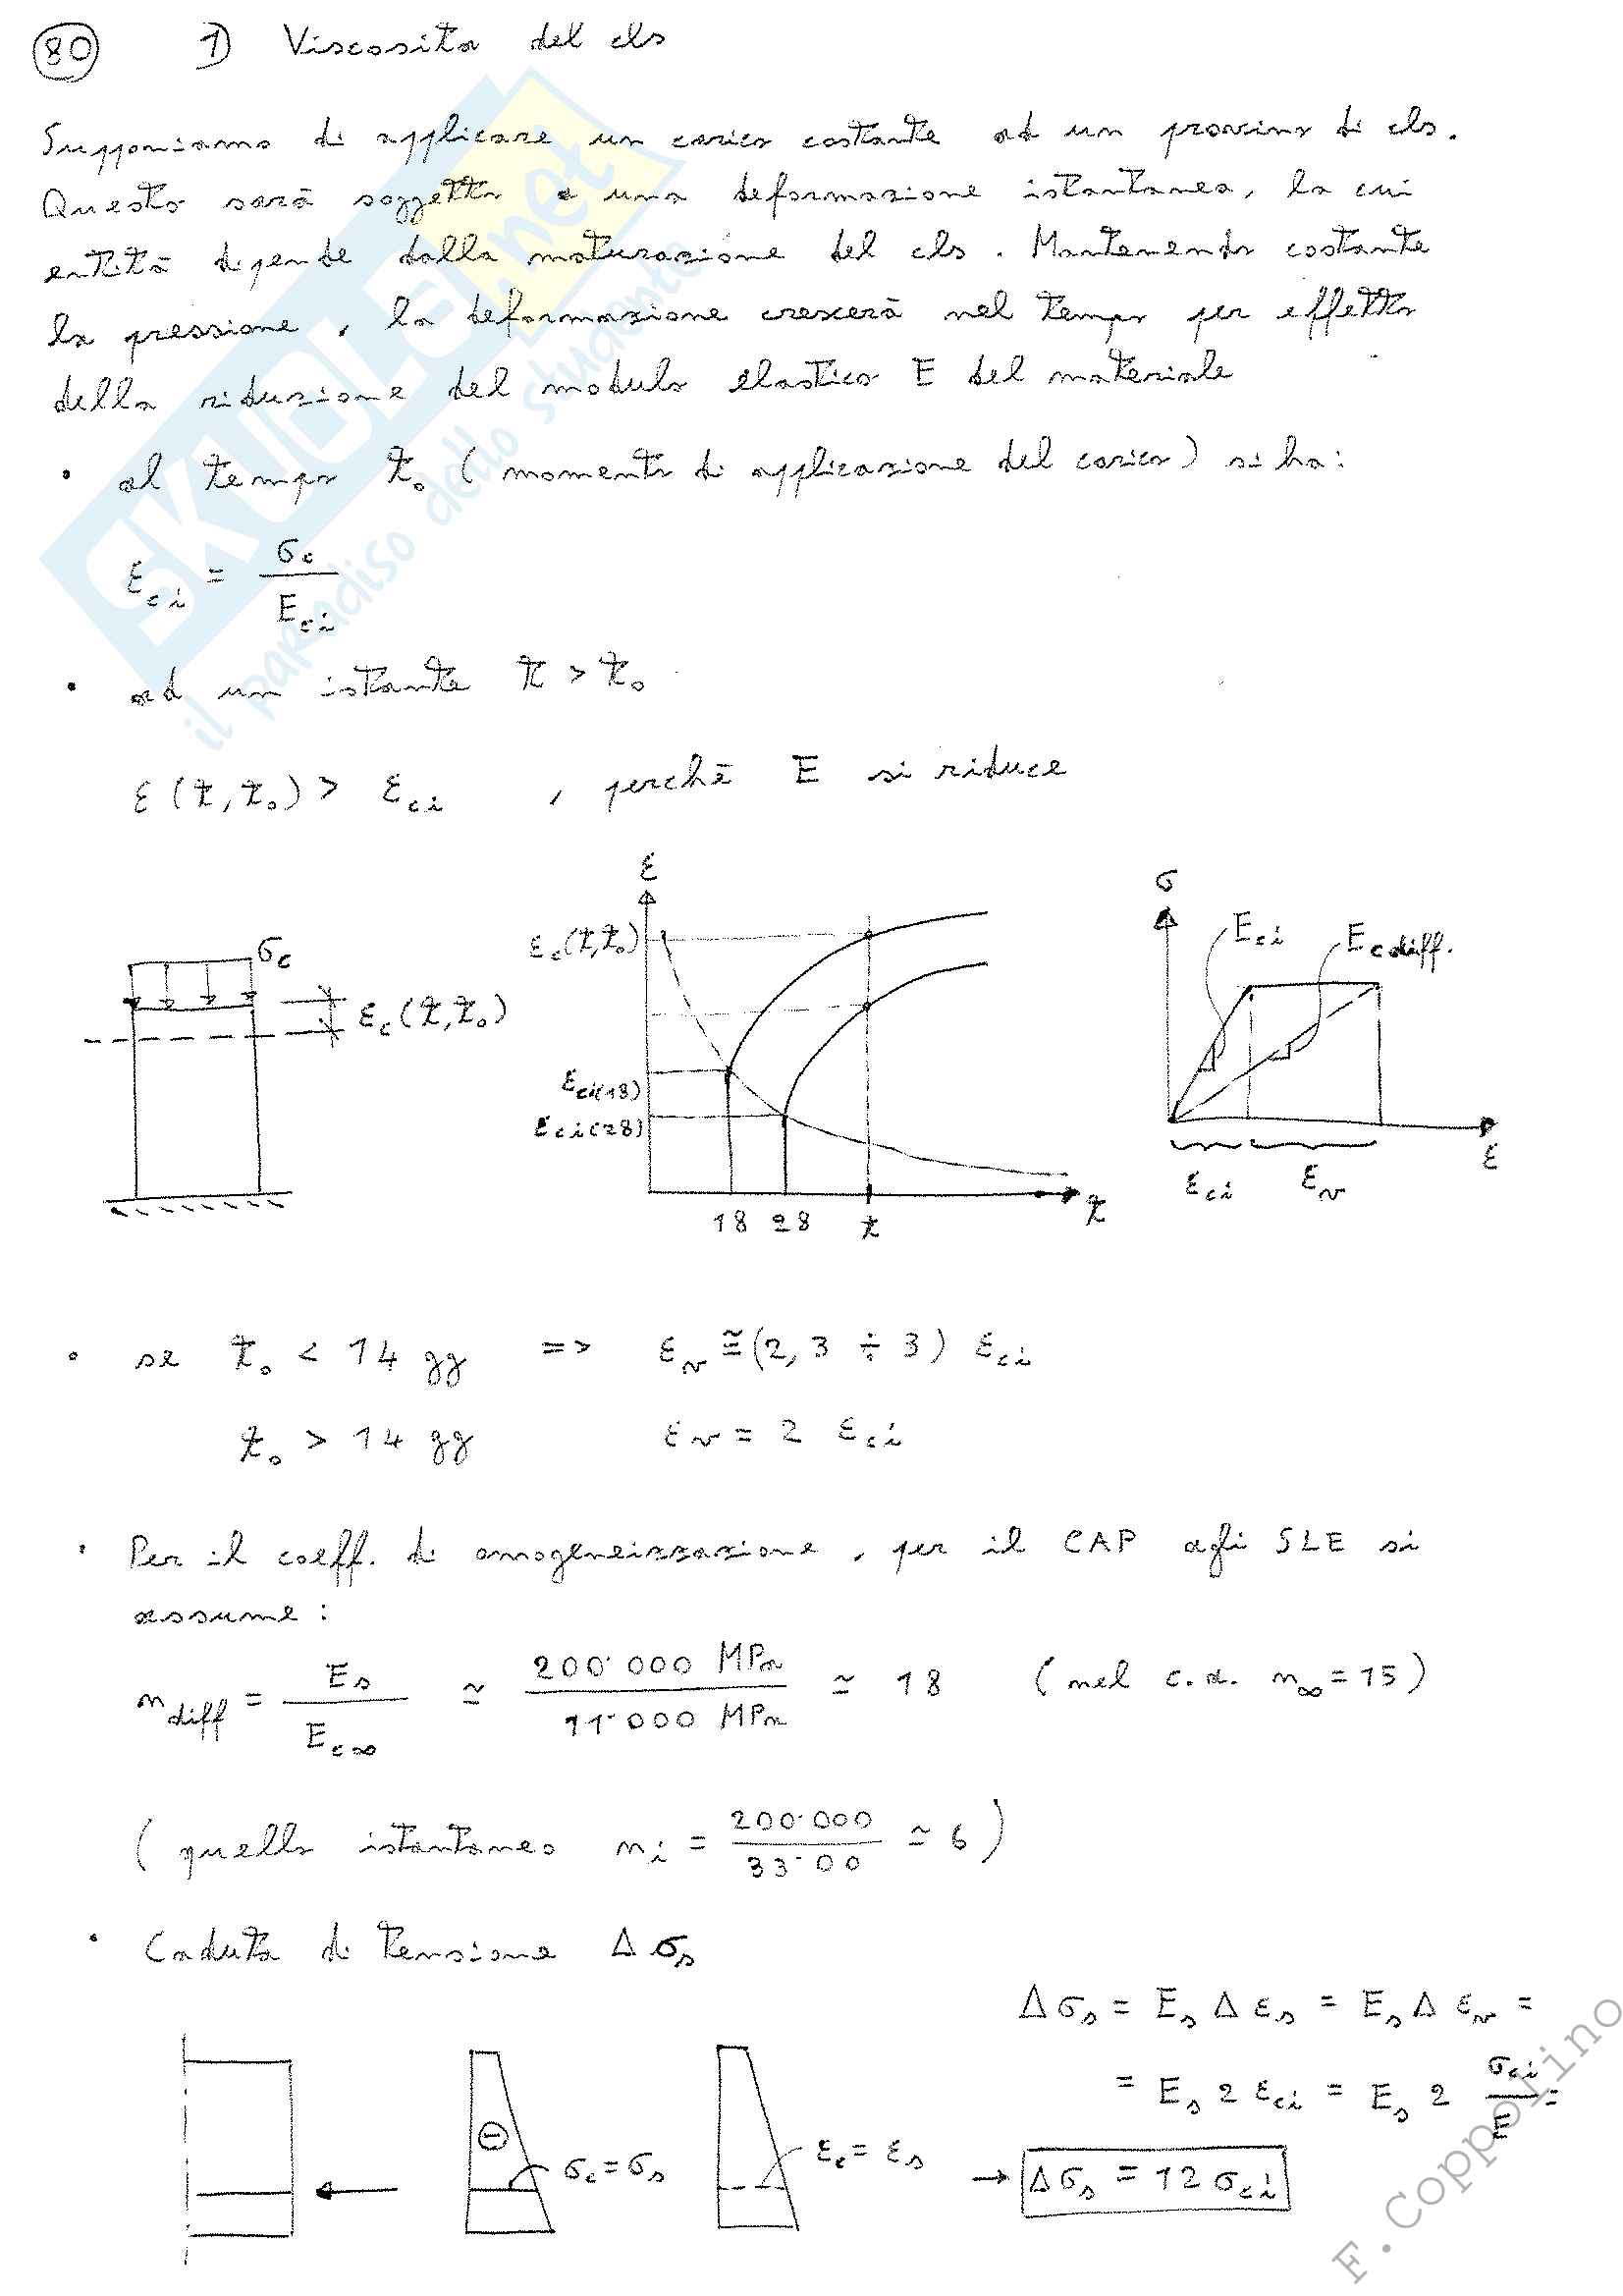 80 1) Viscosità del cls
Supponiamo di applicare un carico costante ad un provino di cls.
Questo sarà soggetto a una deformazione istantanea, la cui
entità dipende dalla maturazione del cls. Mantenendo costante
la pressione, la deformazione crescerà nel tempo per effetto
della riduzione del modulo elastico E del materiale
• al tempo t₀ (momento di applicazione del carico) si ha:
ε_ci = σ_c / E_ci
• ad un istante t > t₀
ε(t,t₀) > ε_ci , perchè E si riduce
σ_c
ε_c(t,t₀)
ε
ε_c(t,t₀)
ε_ci(18)
ε_ci(28)
18 28 t t
σ
E_ci E_cdiff.
ε
ε_ci ε_v
• se t₀ < 14 gg => ε_v ≅ (2,3 ÷ 3) ε_ci
t₀ > 14 gg ε_v = 2 ε_ci
• Per il coeff. di omogeneizzazione, per il CAP agli SLE si
assume:
n_diff = E_s / E_c∞ ≃ 200˙000 MPa / 11˙000 MPa ≃ 18 (nel c.a. n_∞ = 15)
(quello istantaneo n_i = 200˙000 / 33˙00 ≃ 6)
• Caduta di tensione Δσ_s
Δσ_s = E_s Δε_s = E_s Δε_v =
= E_s 2 ε_ci = E_s 2 σ_ci / E =
⊖ σ_c = σ_s
ε_c = ε_s
→ Δσ_s = 12 σ_ci
SKUOLA.net
il paradiso dello studente
F.Coppolino